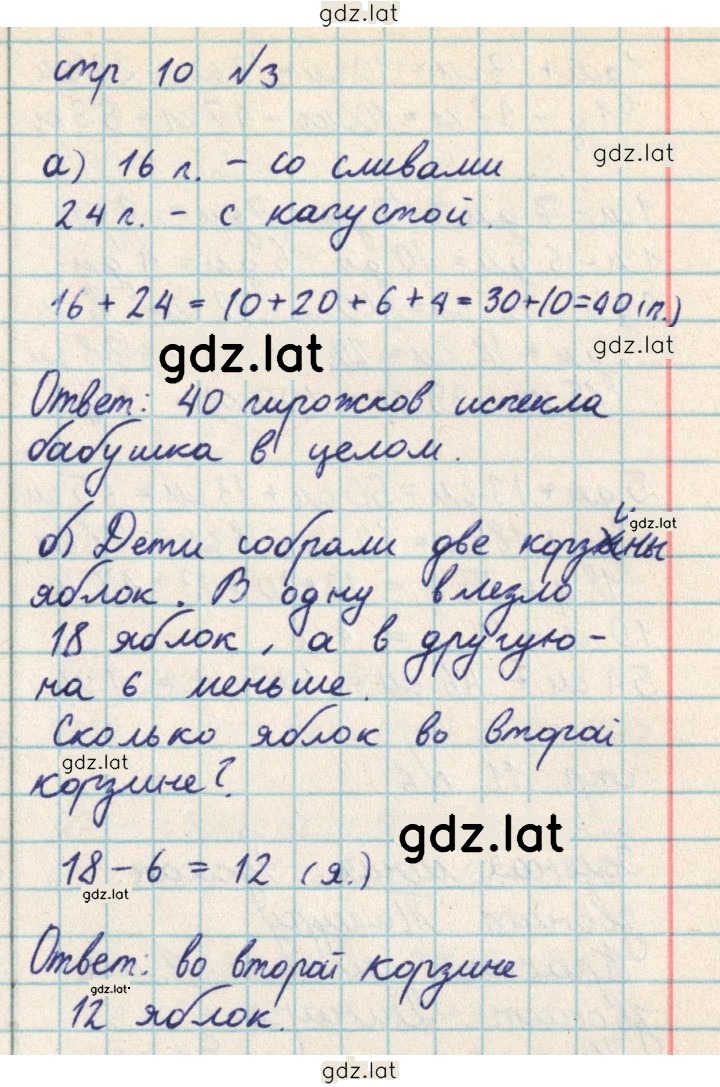 gdz.lat
стр 10 №3
а) 16 п. - со сливами
gdz.lat
24 п. - с капустой.
16 + 24 = 10+20+6+4=30+10=40(п.)
gdz.lat
gdz.lat
Ответ: 40 пирожков испекла
бабушка в целом.
gdz.lat
б) Дети собрали две корзины
яблок. В одну влезло
18 яблок, а в другую-
на 6 меньше.
Сколько яблок во второй
gdz.lat
корзине?
gdz.lat
18-6 = 12 (я.)
gdz.lat
Ответ: во второй корзине
gdz.lat
12 яблок.
gdz.lat